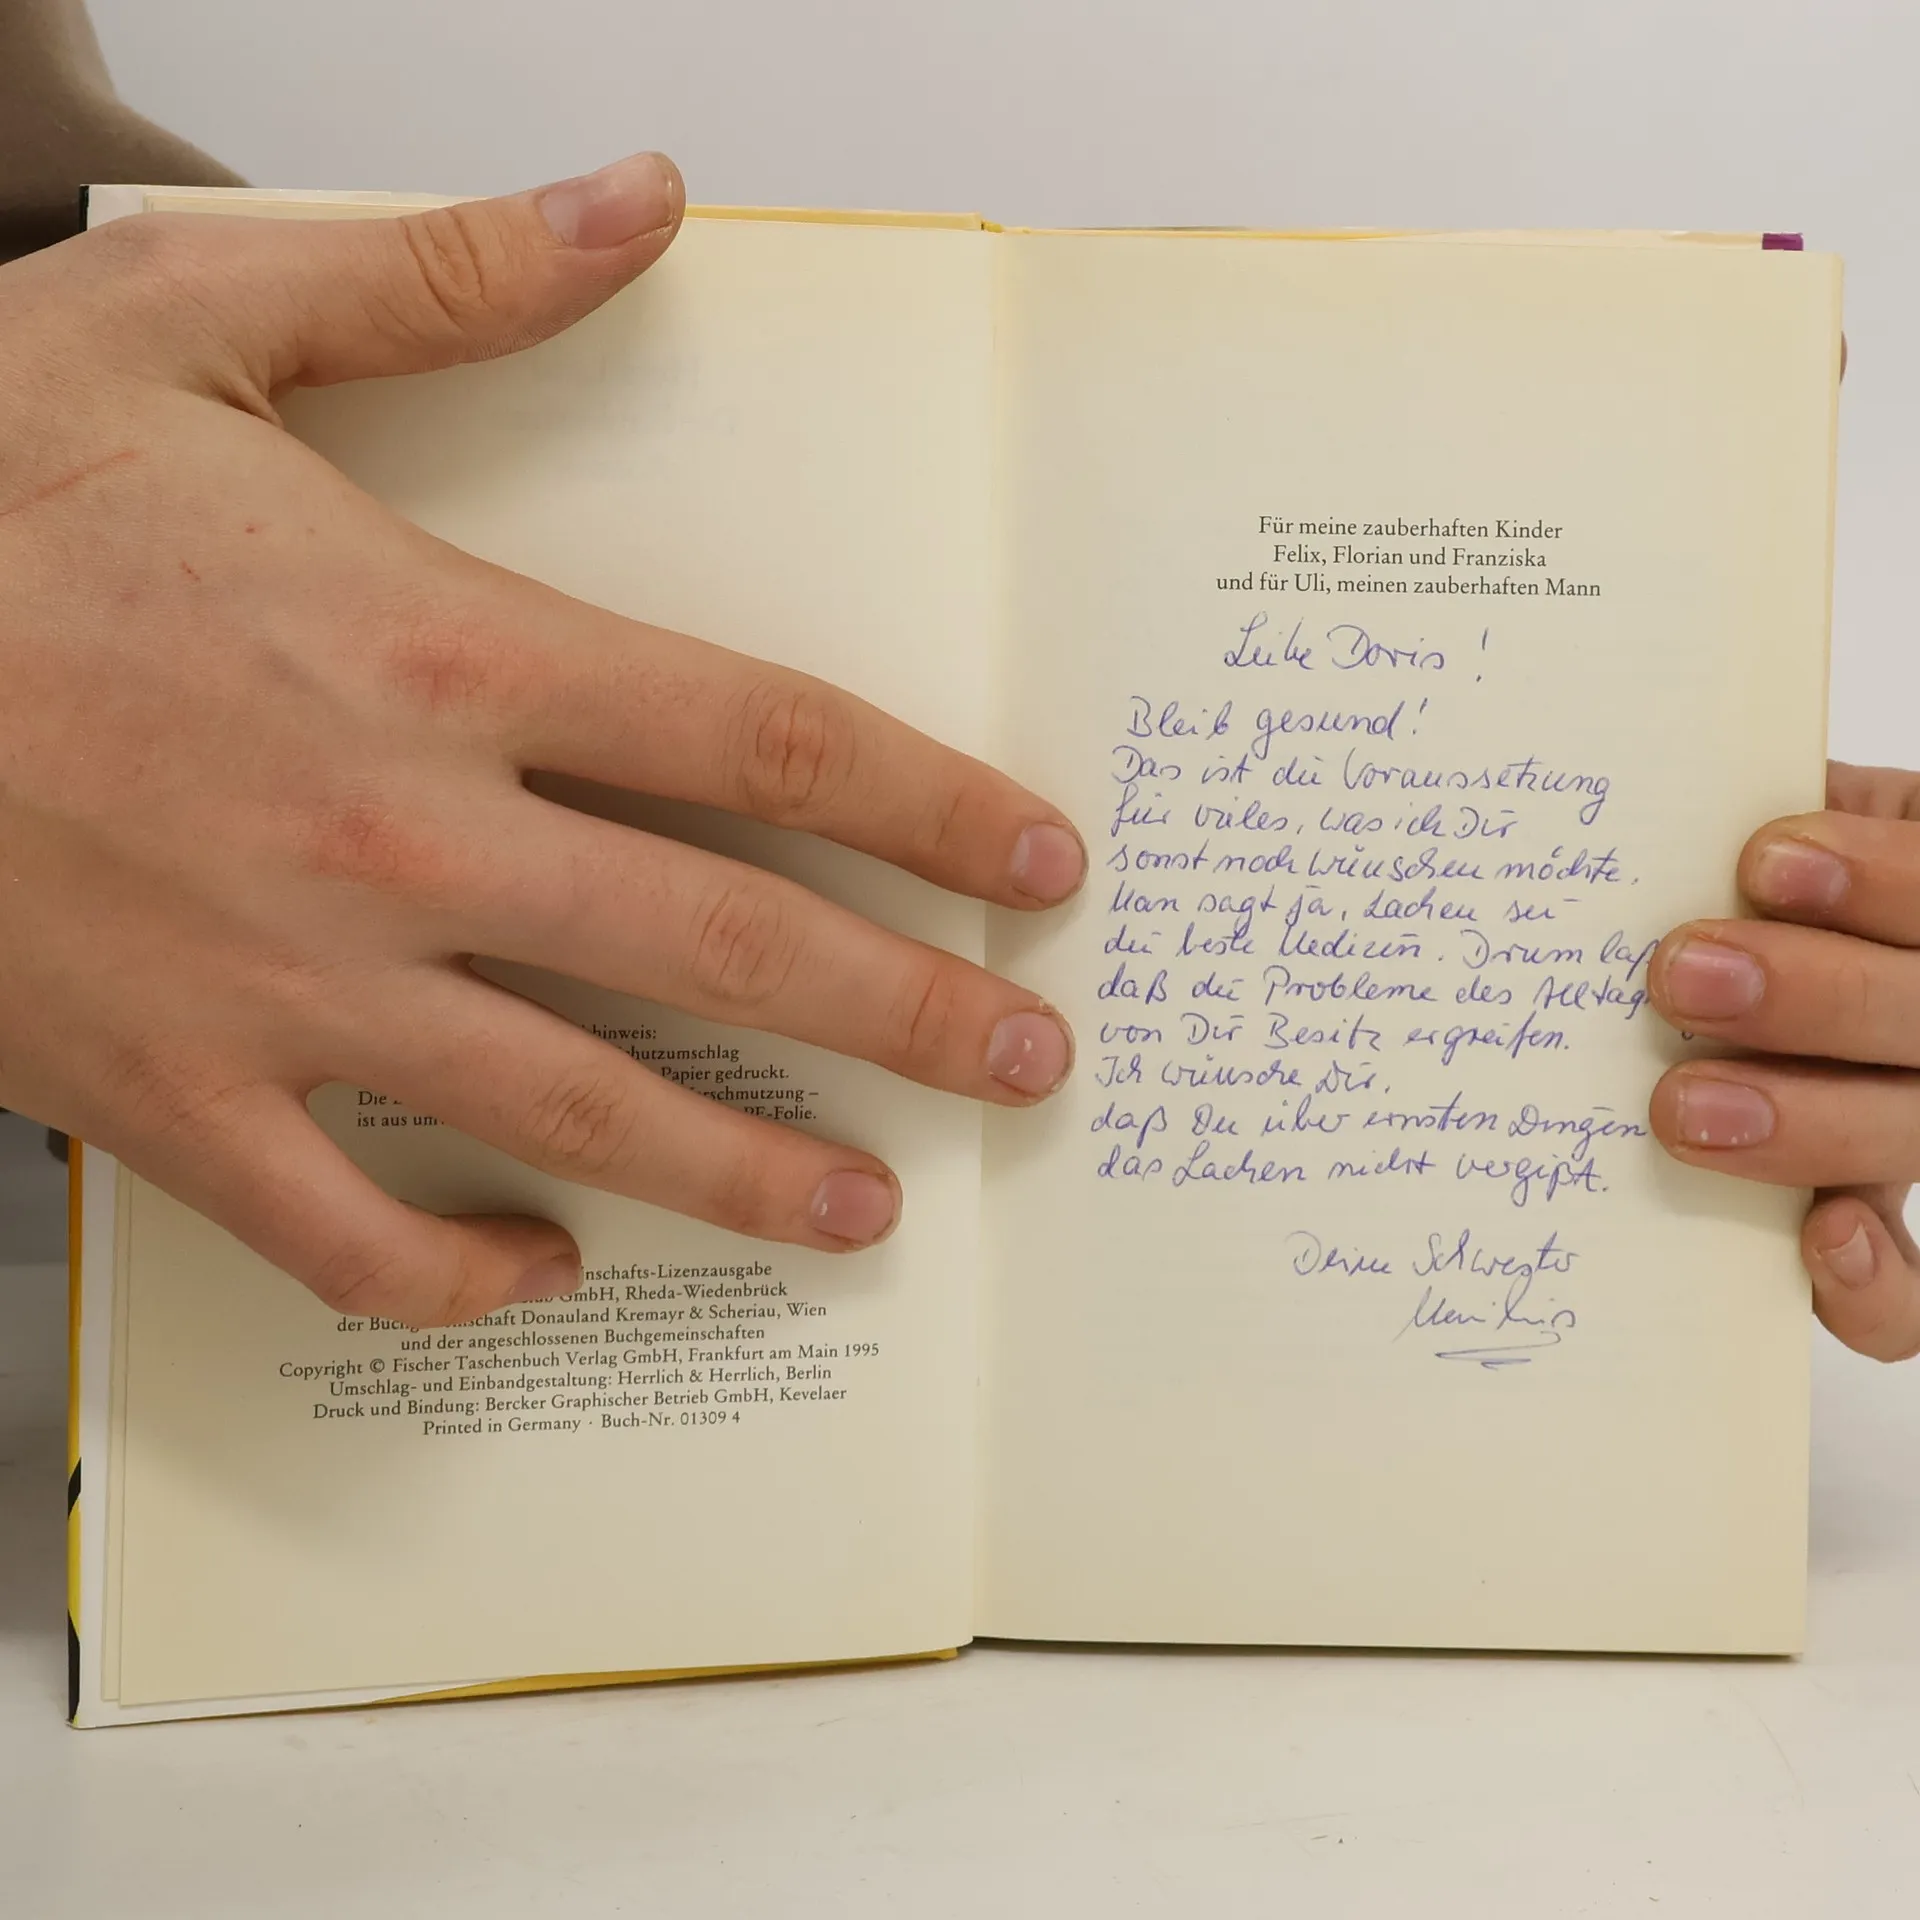 hinweis:
hutzumschlag
Papier gedruckt.
Die rschmutzung –
ist aus um PE-Folie.
nschafts-Lizenzausgabe
GmbH, Rheda-Wiedenbrück
der Buch schaft Donauland Kremayr & Scheriau, Wien
und der angeschlossenen Buchgemeinschaften
Copyright © Fischer Taschenbuch Verlag GmbH, Frankfurt am Main 1995
Umschlag- und Einbandgestaltung: Herrlich & Herrlich, Berlin
Druck und Bindung: Bercker Graphischer Betrieb GmbH, Kevelaer
Printed in Germany · Buch-Nr. 01309 4
Für meine zauberhaften Kinder
Felix, Florian und Franziska
und für Uli, meinen zauberhaften Mann
Liebe Doris!
Bleib gesund!
Das ist die Voraussetzung
für vieles, was ich Dir
sonst noch wünschen möchte.
Man sagt ja, Lachen sei
die beste Medizin. Drum laß
daß die Probleme des Alltag
von Dir Besitz ergreifen.
Ich wünsche Dir,
daß Du über ernsten Dingen
das Lachen nicht vergißt.
Deine Schwester